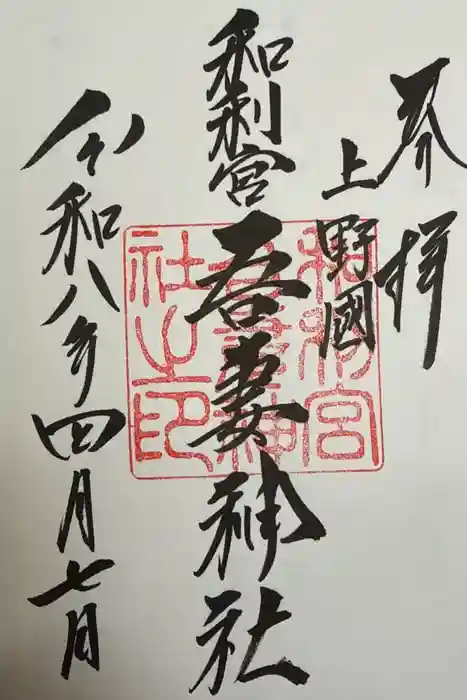 奉拝
上野國
和利宮
吾妻神社
令和八年四月七日
和利宮
吾妻神
社之印